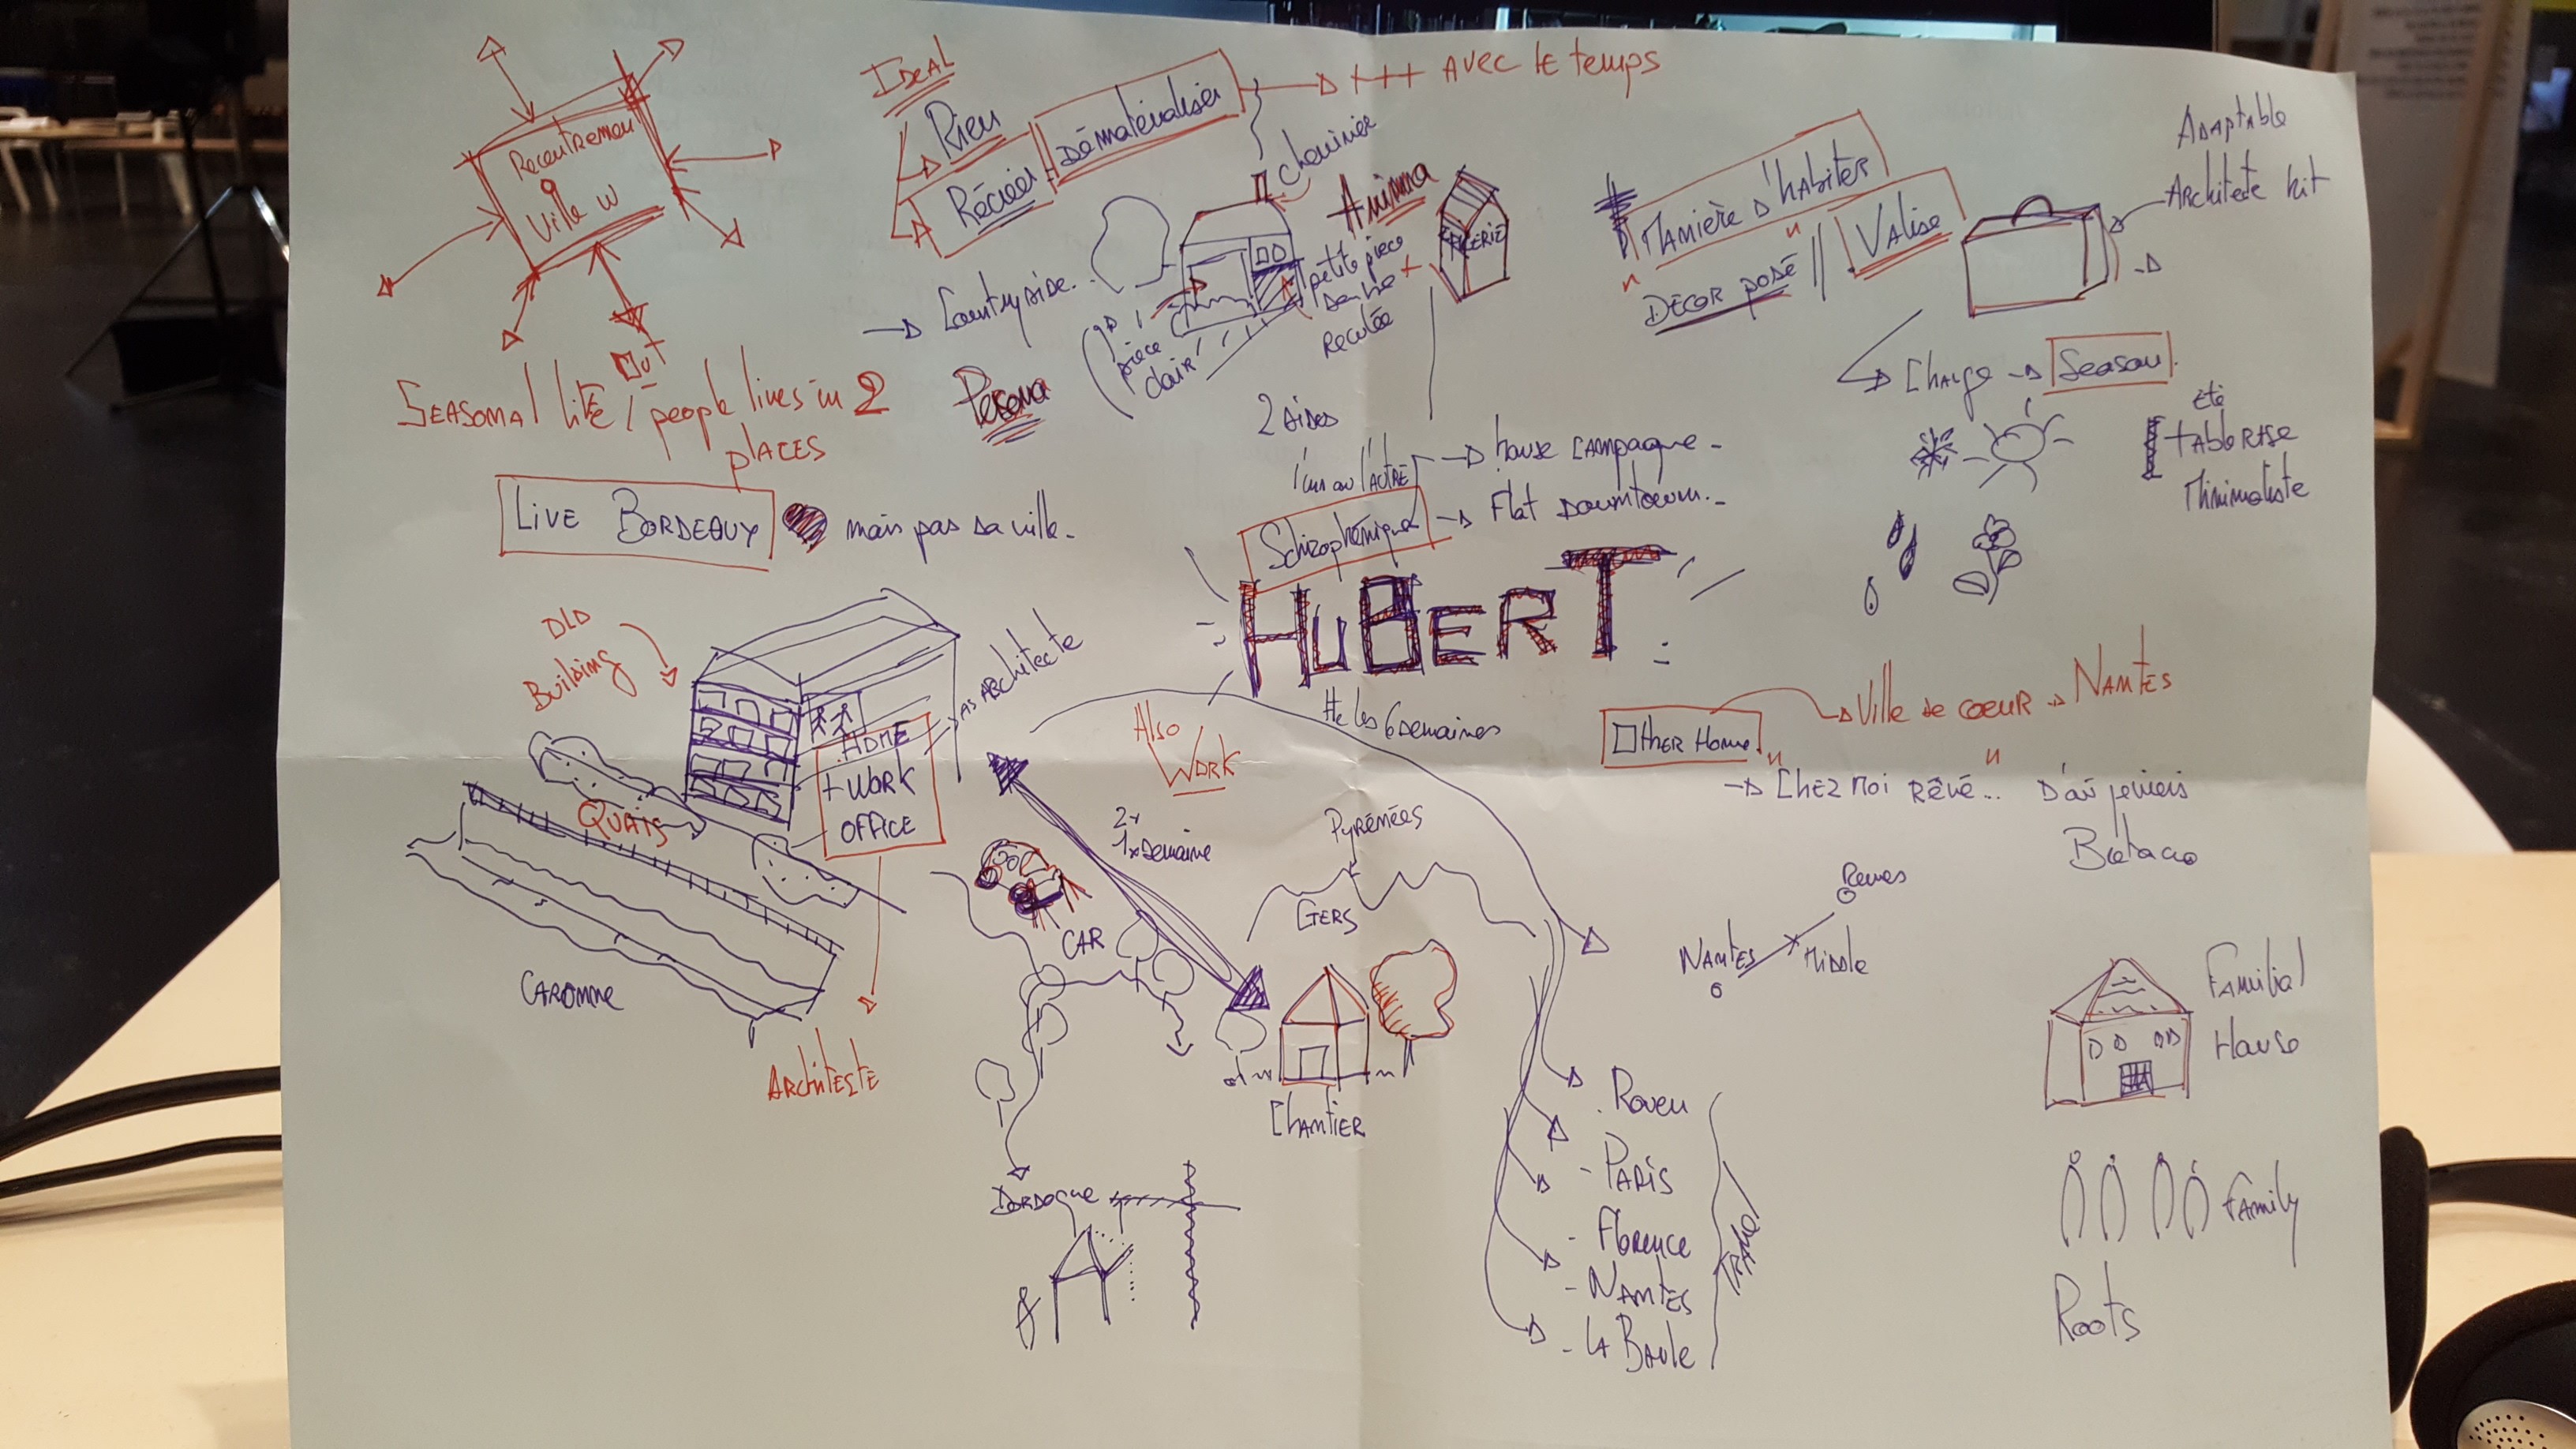 Recentremen
Ville W
Out
SEASONAL life / people lives in 2
places
IDEAL
Rien
Récréer
Dématérialiser
+++ AVEC le temps
cheminée
Anima
Countryside
pièce
clair
petite pièce
Reculée
Persona
2 sides
l'un ou l'autre
house campagne
Flat Downtown
Schizophrénique
Manière d'habiter
Décor posé
Valise
Adaptable
Architecte kit
Change
Season
été
Minimaliste
LIVE BORDEAUX
mais pas sa ville
HUBERT
OLD
Building
AS ARCHITECTE
HOME
+ WORK
OFFICE
QUAIS
GARONNE
Architecte
Also
WORK
2x
1x semaine
CAR
les 6 semaines
Pyrénées
GERS
Chantier
Dordogne
Rouen
- PARIS
- Florence
- NANTES
- LA Baule
Other Home
Ville de coeur
NANTES
"Chez moi rêvé..."
Rennes
NANTES
Middle
Familial
House
Family
Roots